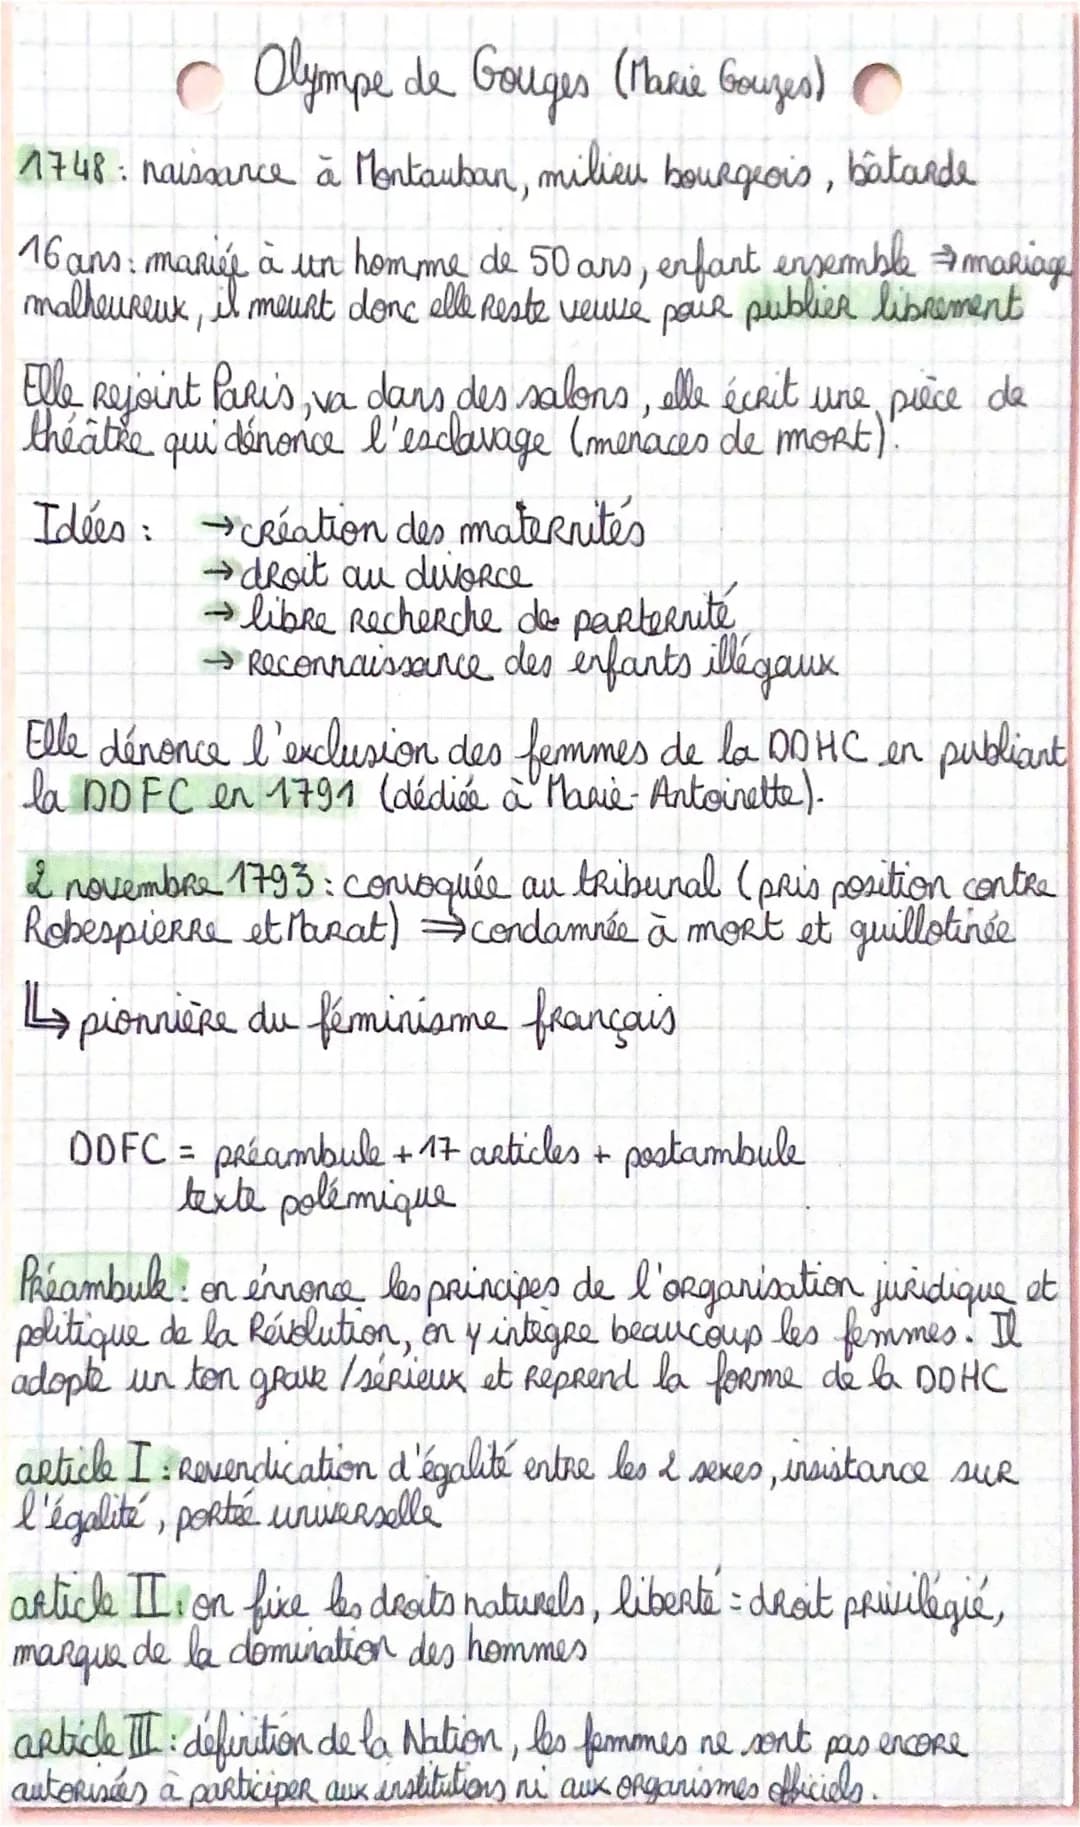 Olympe de Gouges (Marie Gouzes)
1748 : naissance à Montauban, milieu bourgeois, bâtarde
16 ans : mariée à un homme de 50 ans, enfant ensemble ⇒ mariage
malheureux, il meurt donc elle reste veuve pour publier librement
Elle rejoint Paris, va dans des salons, elle écrit une pièce de
théâtre qui dénonce l'esclavage (menaces de mort).
Idées : → création des maternités
→ droit au divorce
→ libre recherche de parternité
→ reconnaissance des enfants illégaux
Elle dénonce l'exclusion des femmes de la DDHC en publiant
la DDFC en 1791 (dédiée à Marie-Antoinette).
2 novembre 1793 : convoquée au tribunal (pris position contre
Robespierre et Marat) ⇒ condamnée à mort et guillotinée
↳ pionnière du féminisme français
DDFC = préambule + 17 articles + postambule
texte polémique
Préambule : on énnonce les principes de l'organisation juridique et
politique de la Révolution, on y intègre beaucoup les femmes. Il
adopte un ton grave / sérieux et reprend la forme de la DDHC
article I : Revendication d'égalité entre les 2 sexes, insistance sur
l'égalité, portée universelle
article II : on fixe les droits naturels, liberté = droit privilégié,
marque de la domination des hommes
article III : définition de la Nation, les femmes ne sont pas encore
autorisées à participer aux institutions ni aux organismes officiels.